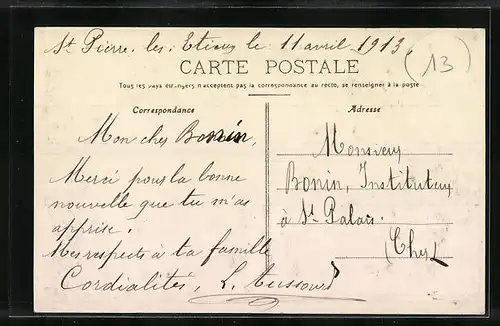 St Pierre les Etieux le 11 avril 1913
(13)
CARTE POSTALE
Tous les pays étrangers n'acceptent pas la correspondance au recto, se renseigner à la poste
Correspondance
Adresse
Mon cher Bonin,
Merci pour la bonne
nouvelle que tu m'as
apprise.
Mes respects à ta famille
Cordialités, L.
Monsieur
Bonin, Instituteur
à St Palais.
Cher